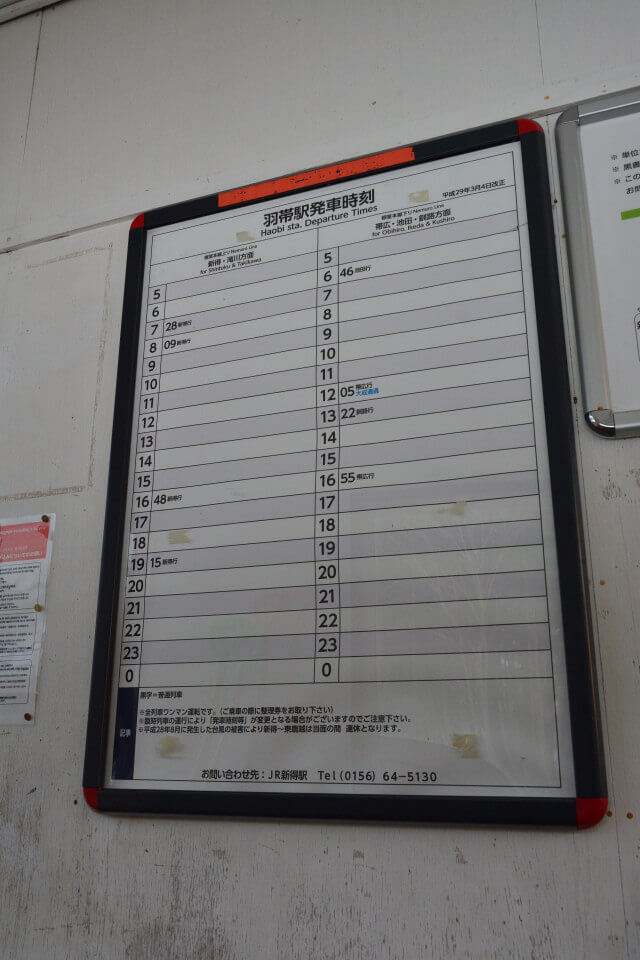 羽帯駅発車時刻
Haobi sta. Departure Times
平成29年3月4日改正
根室本線上り Nemuro Line
新得・滝川方面
for Shintoku & Takikawa
5
6
7 28 新得行
8 09 新得行
9
10
11
12
13
14
15
16 48 新得行
17
18
19 15 新得行
20
21
22
23
0
根室本線下り Nemuro Line
帯広・池田・釧路方面
for Obihiro, Ikeda & Kushiro
5
6 46 池田行
7
8
9
10
11
12 05 帯広行
大成通過
13 22 釧路行
14
15
16 55 帯広行
17
18
19
20
21
22
23
0
記事
黒字=普通列車
※全列車ワンマン運転です。(ご乗車の際に整理券をお取り下さい)
※臨時列車の運行により「発車時刻等」が変更となる場合がございますのでご注意下さい。
※平成28年8月に発生した台風の被害により新得~東鹿越は当面の間 運休となります。
お問い合わせ先:JR新得駅 Tel(0156)64-5130
※ 単位
※ 黒書
※ この
お問